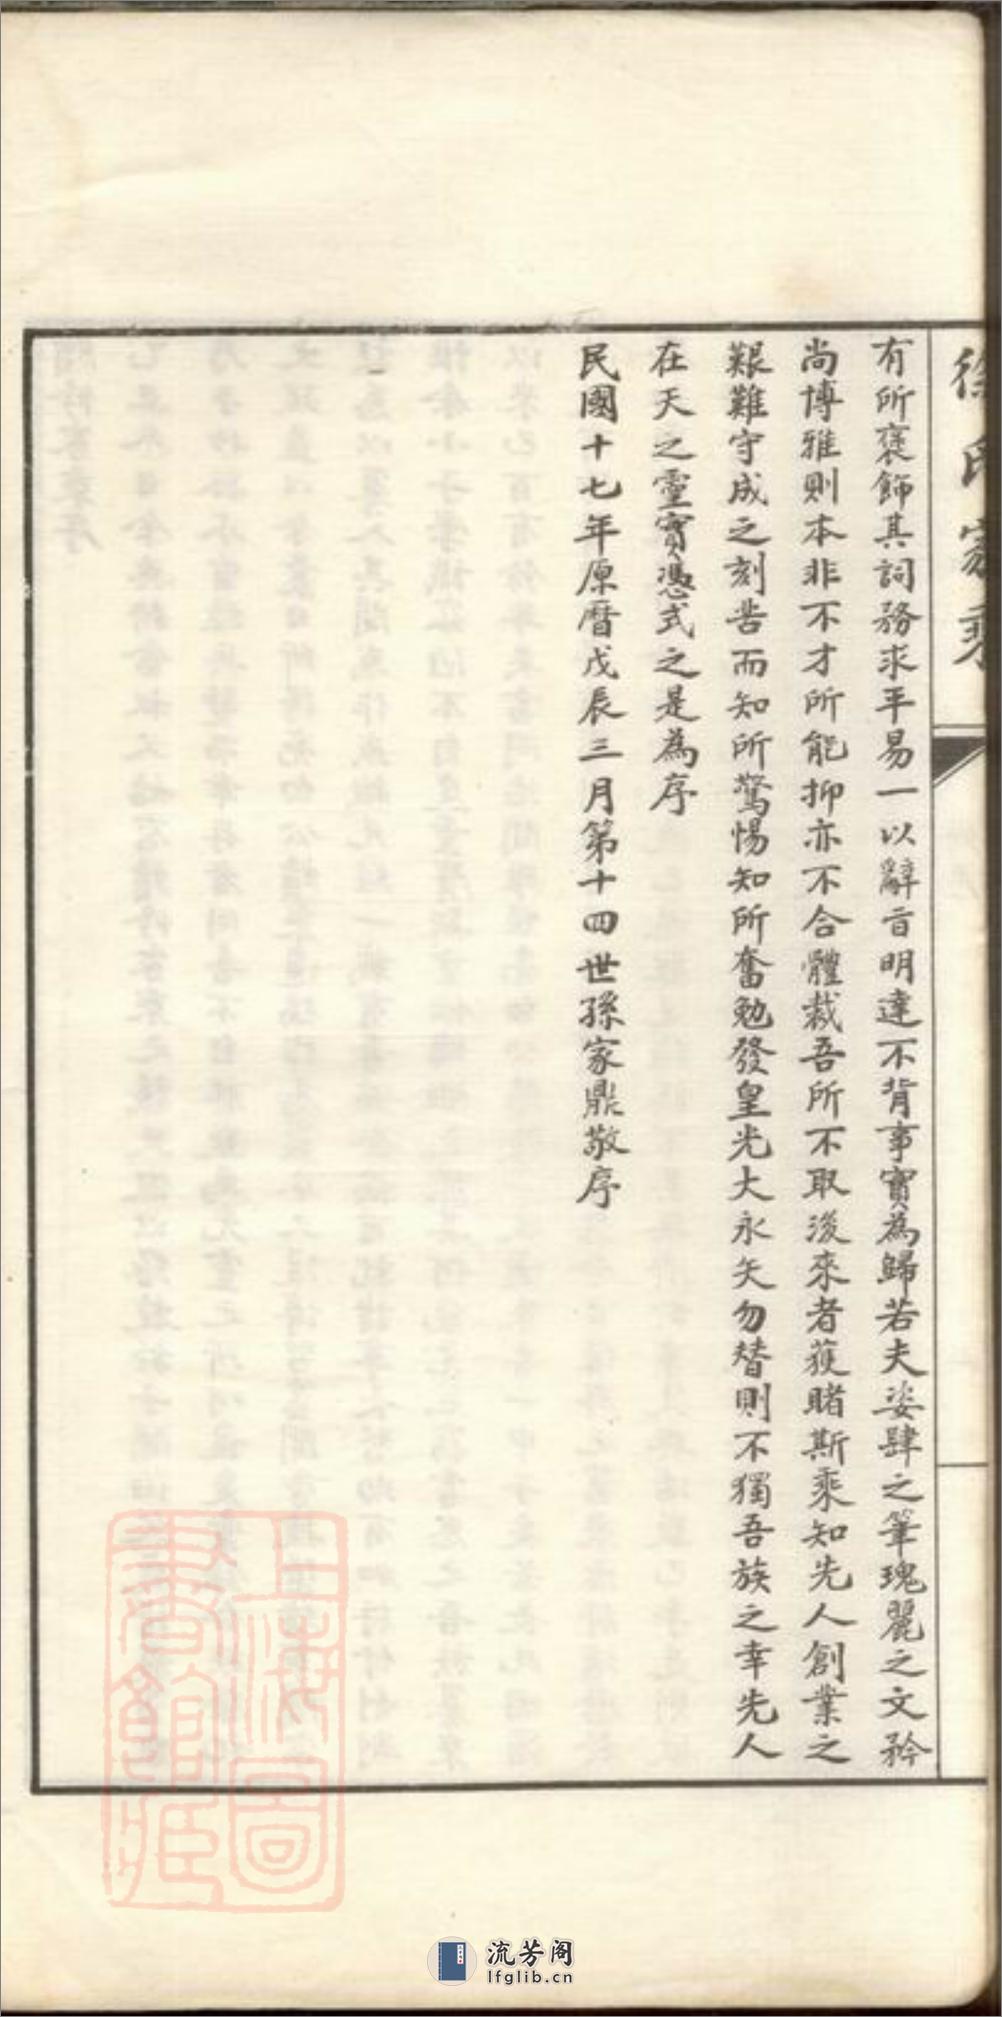 徐氏家乘
有所褒飾其詞務求平易一以辭旨明達不背事實為歸若夫姿肆之筆瑰麗之文矜
尚博雅則本非不才所能抑亦不合體裁吾所不取後來者獲睹斯乘知先人創業之
艱難守成之刻苦而知所驚惕知所奮勉發皇光大永矢勿替則不獨吾族之幸先人
在天之靈實憑式之是為序
民國十七年原曆戊辰三月第十四世孫家鼎敬序
上海圖書館藏
流芳阁
lfglib.cn